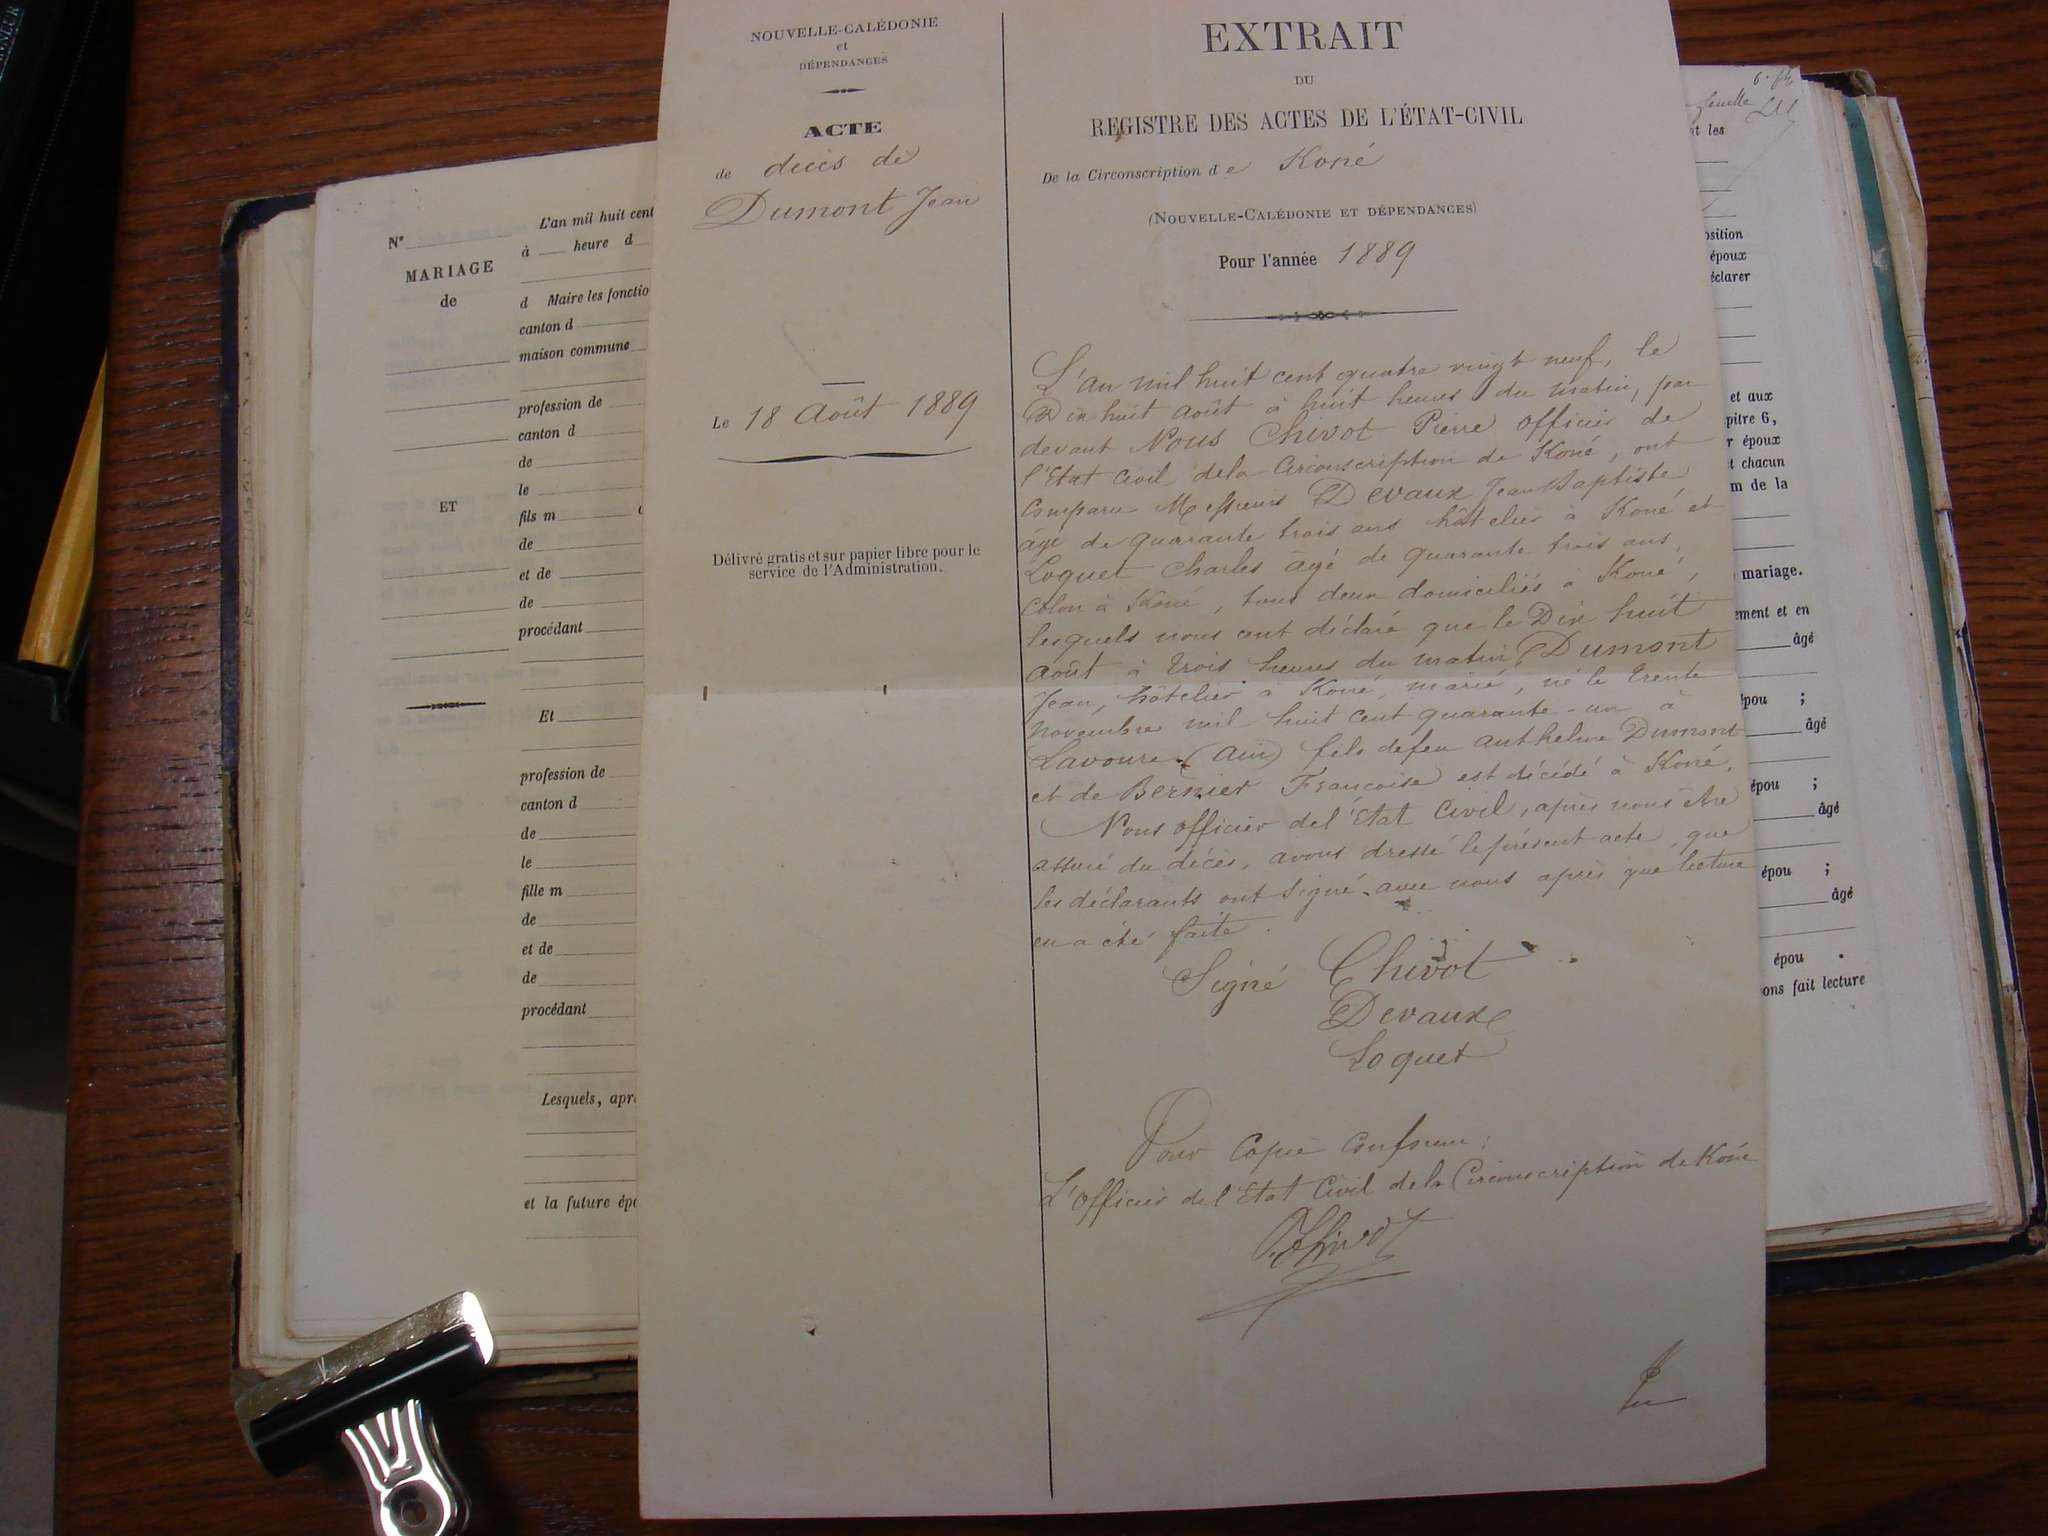 NOUVELLE-CALÉDONIE
et
DÉPENDANCES
ACTE
de décès de
Dumont Jean
Le 18 Août 1889
Délivré gratis et sur papier libre pour le
service de l'Administration.
EXTRAIT
DU
REGISTRE DES ACTES DE L'ÉTAT-CIVIL
De la Circonscription de Koné
(NOUVELLE-CALÉDONIE ET DÉPENDANCES)
Pour l'année 1889
L'an mil huit cent quatre vingt neuf, le
Dix huit Août à huit heures du matin, par
devant Nous Chivot Pierre officier de
l'Etat Civil de la Circonscription de Koné, ont
comparu Messieurs Devaux Jean Baptiste
âgé de quarante trois ans hôtelier à Koné et
Loquet Charles âgé de quarante trois ans,
colon à Koné, tous deux domiciliés à Koné,
lesquels nous ont déclaré que le Dix huit
Août à trois heures du matin, Dumont
Jean, hôtelier à Koné, marié, né le trente
Novembre mil huit cent quarante-un à
Lavoure (Ain) fils de feu Anthelme Dumont
et de Bernier Françoise est décédé à Koné.
Nous officier de l'Etat Civil, après nous être
assuré du décès, avons dressé le présent acte, que
les déclarants ont signé avec nous après que lecture
en a été faite.
Signé Chivot
Devaux
Loquet
Pour Copie conforme:
L'Officier de l'Etat Civil de la Circonscription de Koné
PChivot
N°
MARIAGE
de
ET
L'an mil huit cent
à heure d
d Maire les fonctio
canton d
maison commune
profession de
canton d
de
le
fils m
de
et de
de
procédant
Et
profession de
canton d
de
le
fille m
de
et de
de
procédant
Lesquels, apr
et la future épo
feuille
nt les
position
époux
éclarer
et aux
pitre 6,
r époux
t chacun
m de la
mariage.
ement et en
âgé
épou ;
âgé
épou ;
âgé
épou ;
âgé
épou .
ons fait lecture